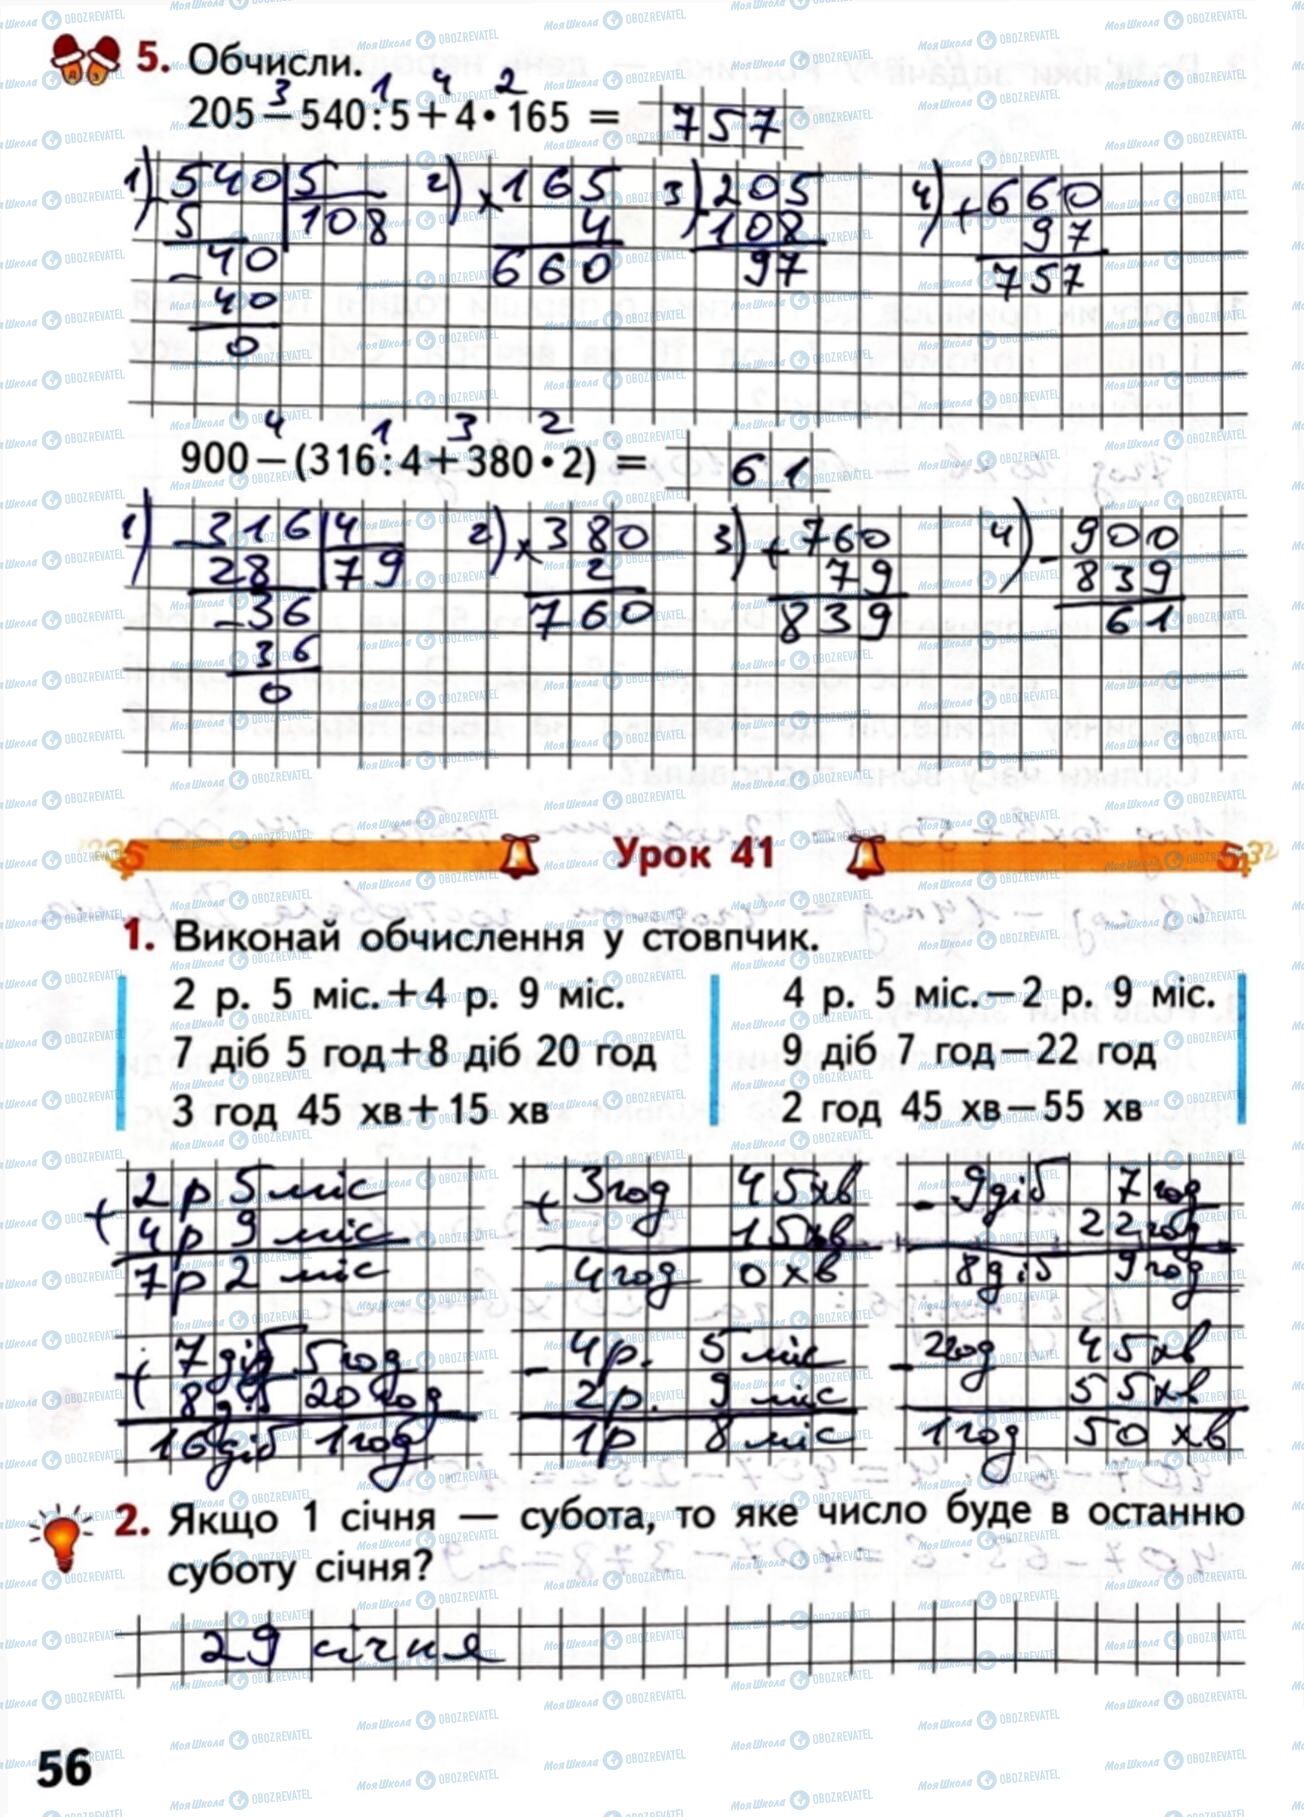 5. Обчисли.
3 1 4 2
205−540:5+4·165 = 757
1) −540 | 5 2) ×165 3) −205 4) +660
5 108 4 108 97
−40 660 97 757
40
0
4 1 3 2
900−(316:4+380·2) = 61
1) −316 | 4 2) ×380 3) +760 4) −900
28 79 2 79 839
−36 760 839 61
36
0
Урок 41
1. Виконай обчислення у стовпчик.
2 р. 5 міс.+4 р. 9 міс. 4 р. 5 міс.−2 р. 9 міс.
7 діб 5 год+8 діб 20 год 9 діб 7 год−22 год
3 год 45 хв+15 хв 2 год 45 хв−55 хв
+ 2р 5 міс + 3год 45хв − 9діб 7год
4р 9 міс 15хв 22год
7р 2 міс 4год 0хв 8діб 9год
+ 7діб 5год − 4р. 5 міс − 2год 45хв
8діб 20год 2р. 9 міс 55хв
16діб 1год 1р 8міс 1год 50хв
2. Якщо 1 січня — субота, то яке число буде в останню
суботу січня?
29 січня
56
МояШкола OBOZREVATEL